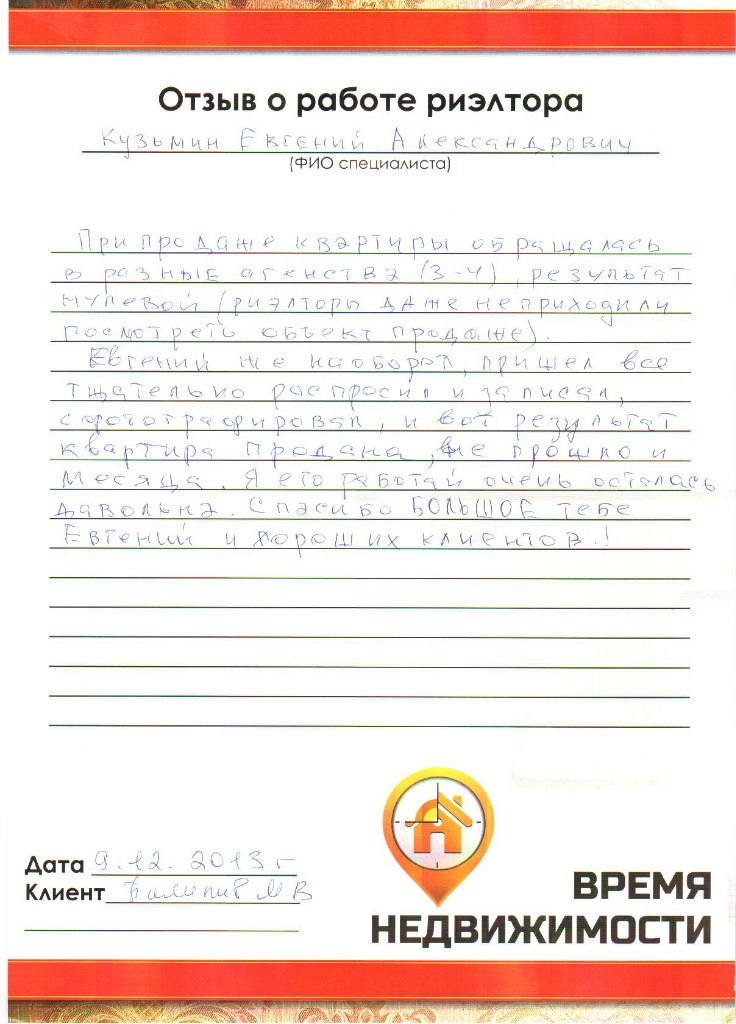 Отзыв о работе риэлтора
Кузьмин Евгений Александрович
(ФИО специалиста)
При продаже квартиры обращалась
в разные агенства (3-4), результат
нулевой (риэлторы даже неприходили
посмотреть объект продаже).
Евгений же наоборот, пришел все
тщательно распросил и записал,
сфотографировал, и вот результат
квартира продана, не прошло и
месяца. Я его работай очень осталась
давольна. Спасибо БОЛЬШОЕ тебе
Евгений и хороших клиентов.!
Дата 9.12.2013 г
Клиент М.В
ВРЕМЯ
НЕДВИЖИМОСТИ